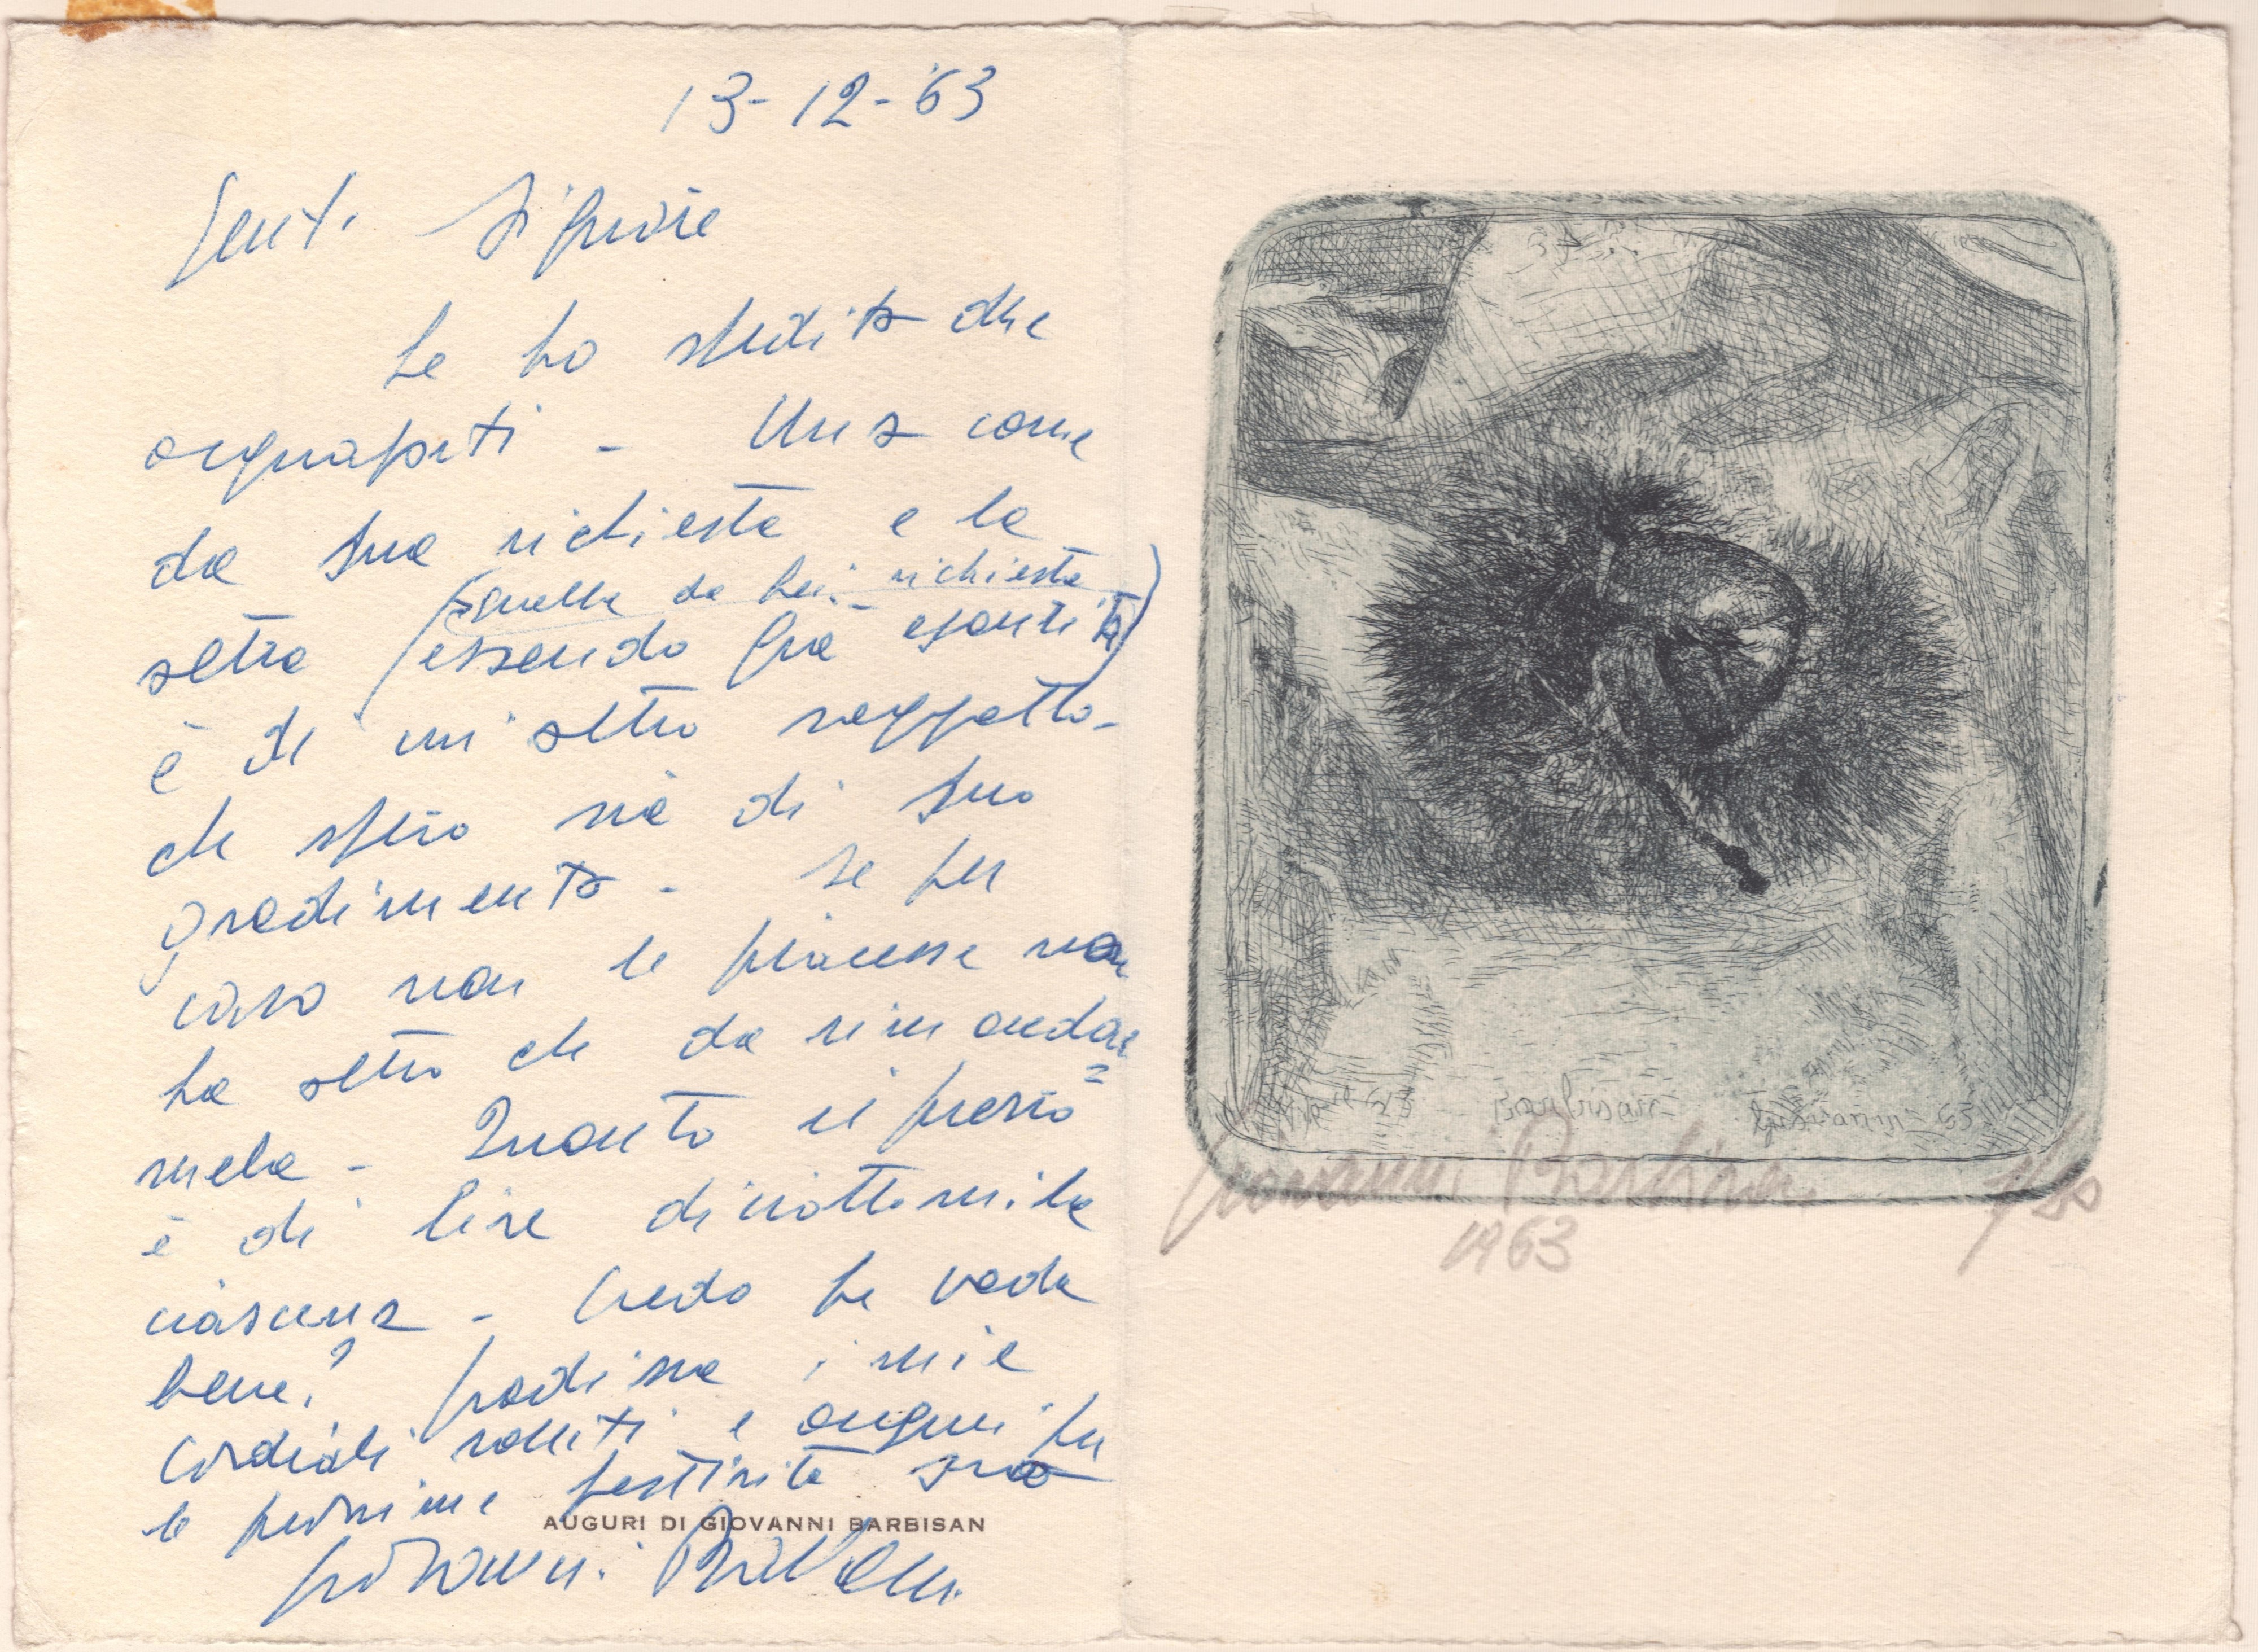 13-12-'63
Gent. Signore
Le ho spedito due
acqueforti - Una come
da sua richiesta e la
altra (essendo già esaurita
quella da Lei richiesta)
è di un altro soggetto -
che spero sia di suo
gradimento - Se per
caso non le piacesse non
ha altro che da rimandar=
mela - Quanto il prezzo
è di lire diciottomila
ciascuna - Credo Le vada
bene? Gradisca i miei
cordiali saluti e auguri per
le prossime festività suo
AUGURI DI GIOVANNI BARBISAN
Giovanni Barbisan
Barbisan Giovanni 63
Giovanni Barbisan
1963